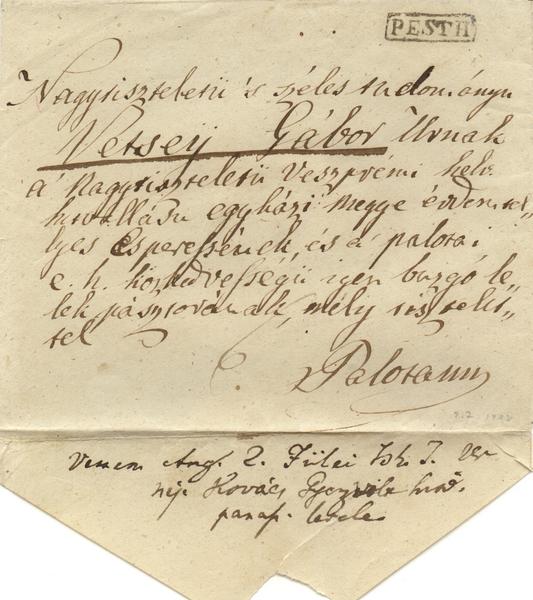 PESTH
Nagytiszteletü 's széles tudományu
Vetseÿ Gábor Urnak
a' Nagytiszteletü Veszprémi helv.
hitvallásu egyházi megye érdemtel„
lyes Esperessének, és a' palotai
e. h. közkedvességü igen buzgó le„
lek pásztorának, mély tisztelet„
tel
Palotánn
Vettem Aug. 2. Fülei
Kovács
panasz levele